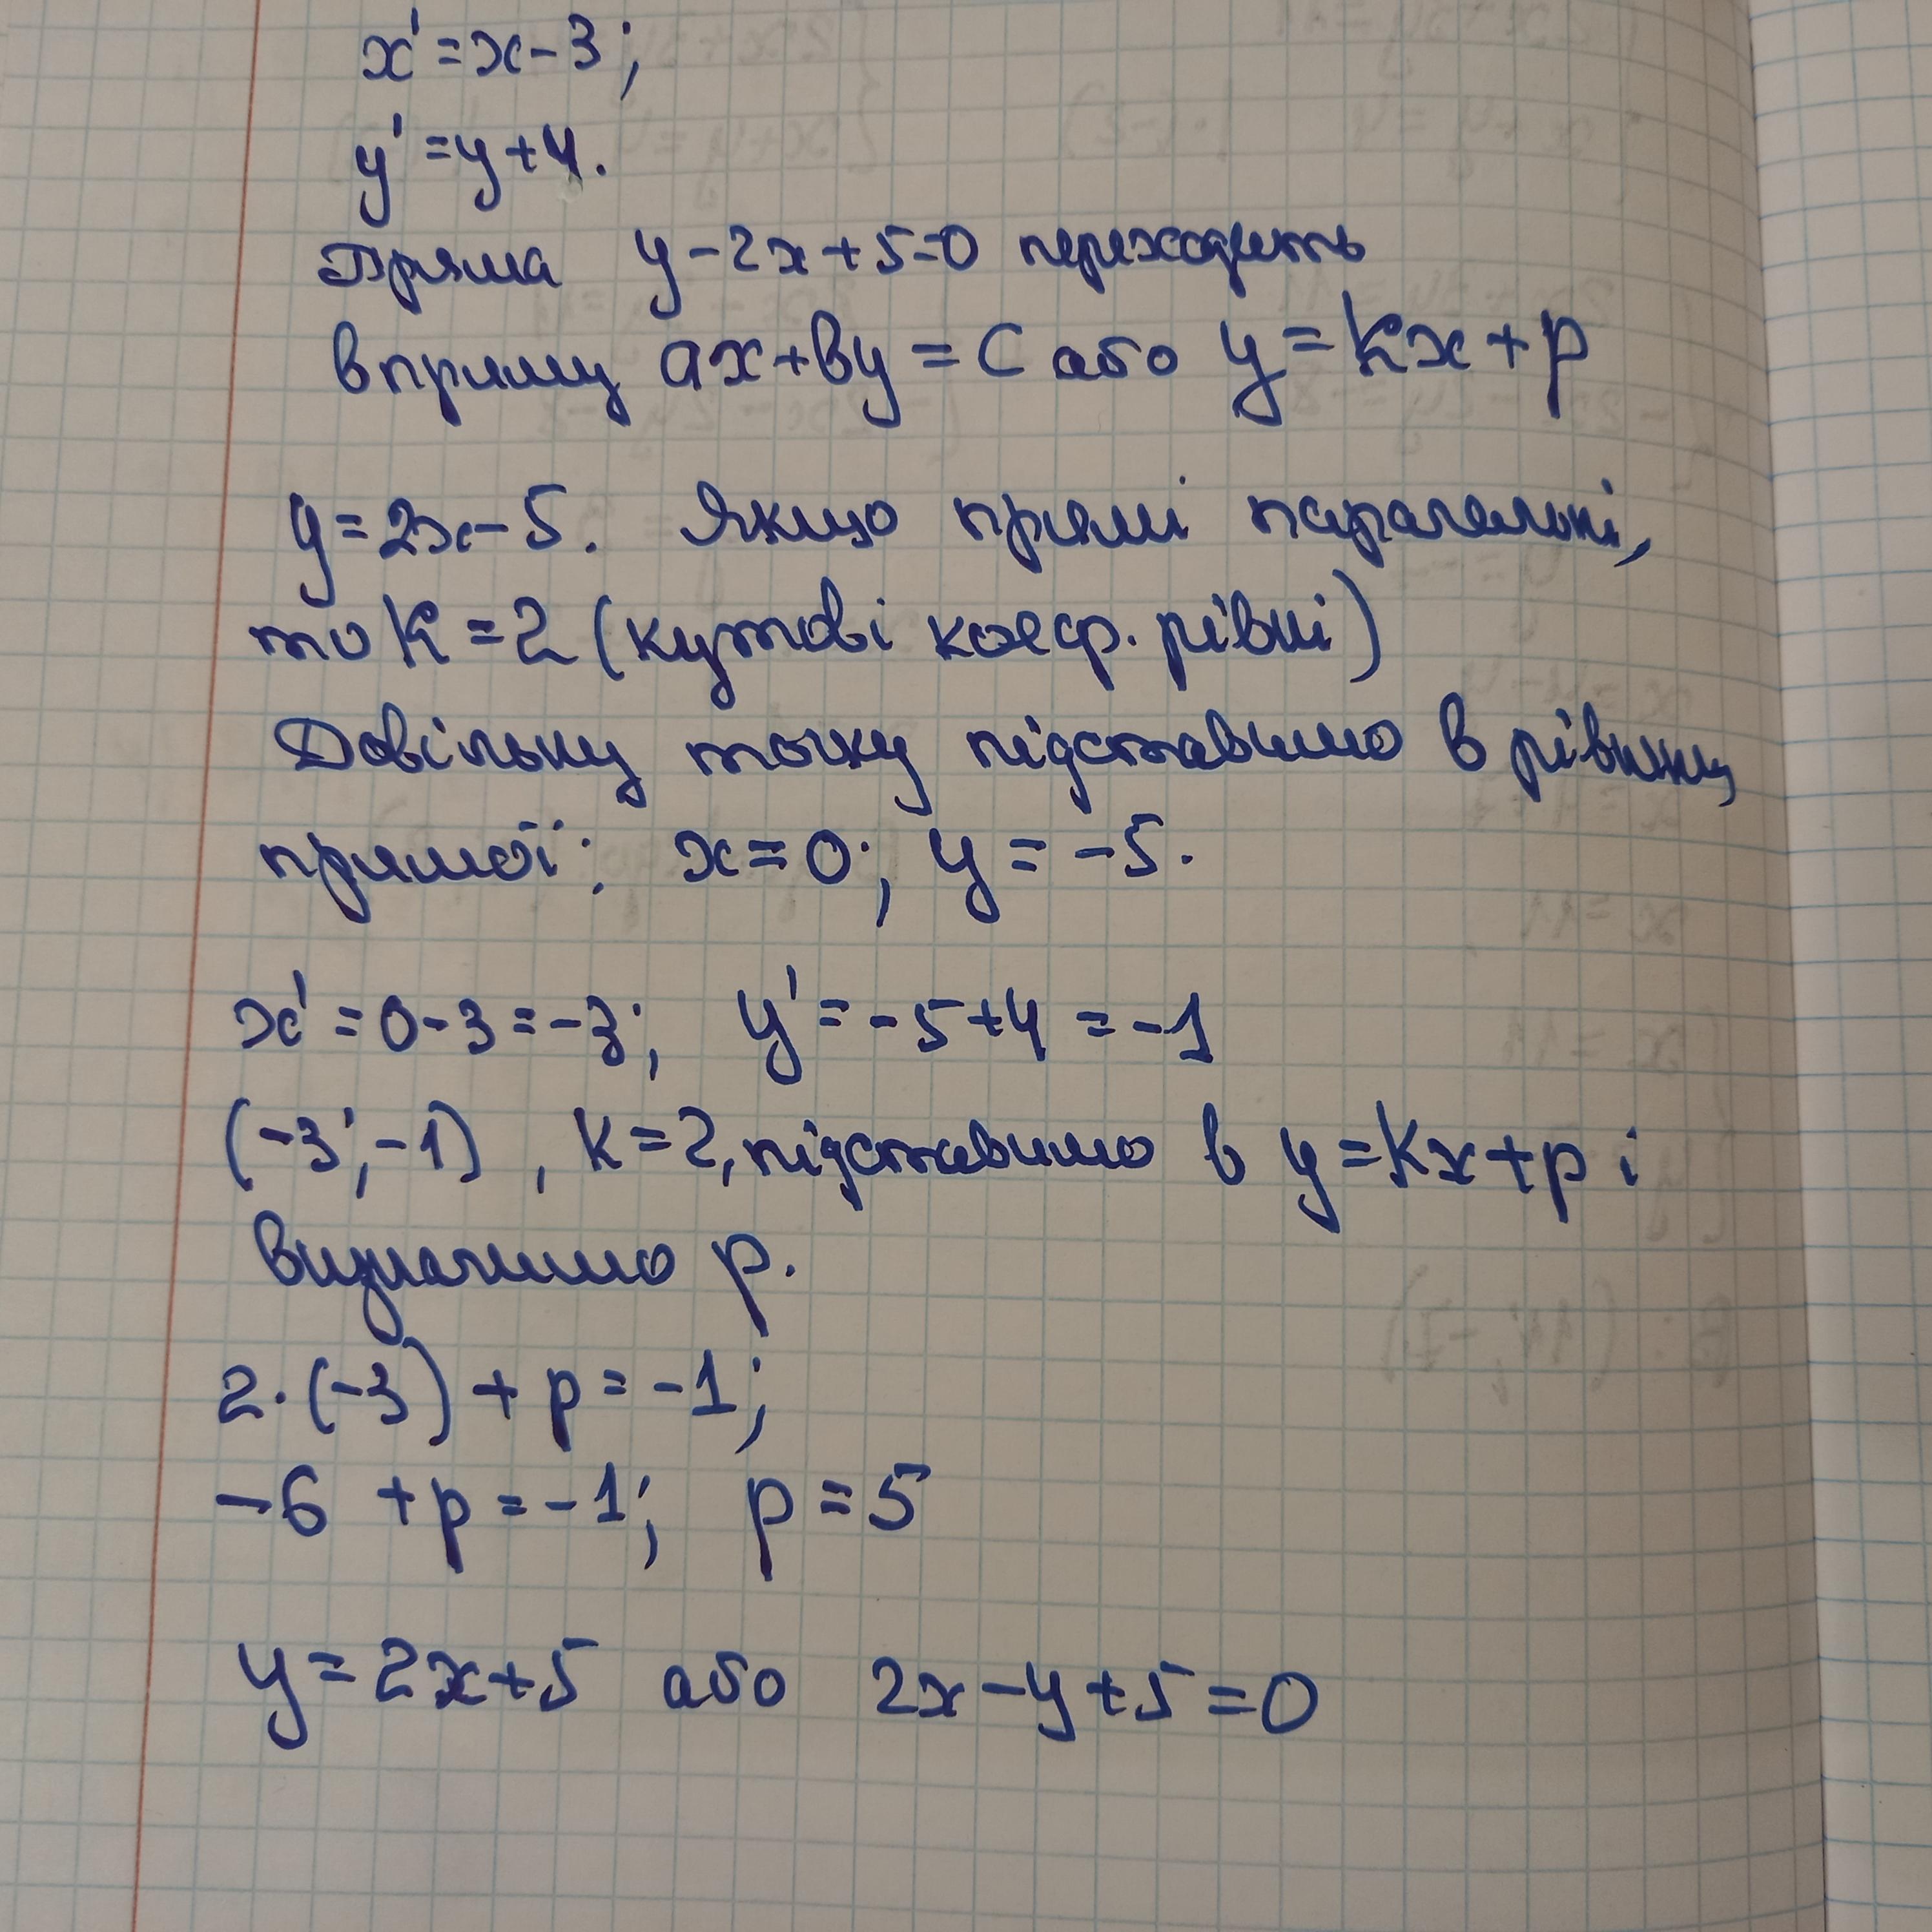 x' = x - 3;
y' = y + 4.
Пряма y - 2x + 5 = 0 переходить
в пряму ax + by = C або y = kx + p
y = 2x - 5. Якщо прямі паралельні,
то k = 2 (кутові коеф. рівні)
Довільну точку підставимо в рівнян
прямої: x = 0; y = -5.
x' = 0 - 3 = -3; y' = -5 + 4 = -1
(-3; -1), k = 2, підставимо в y = kx + p і
визначимо p.
2 · (-3) + p = -1;
-6 + p = -1; p = 5
y = 2x + 5 або 2x - y + 5 = 0